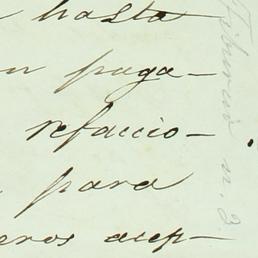 hasta
n paga-
refaccio-
para
eros acep-
Tiburcio n. 3.